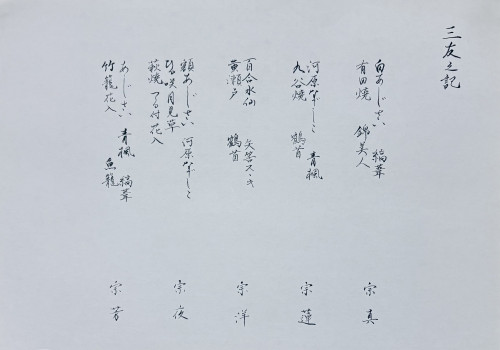 三友之記
白あじさい 縞葦
有田焼 錦美人
宗真
河原なでしこ 青楓
九谷焼 鶴首
宗蓮
百合水仙 矢筈ススキ
黄瀬戸 鶴首
宗洋
額あじさい 河原なでしこ
ひる咲月見草
萩焼 つる付花入
宗夜
あじさい 青楓 縞葦
竹籠花入 魚籠
宗芳